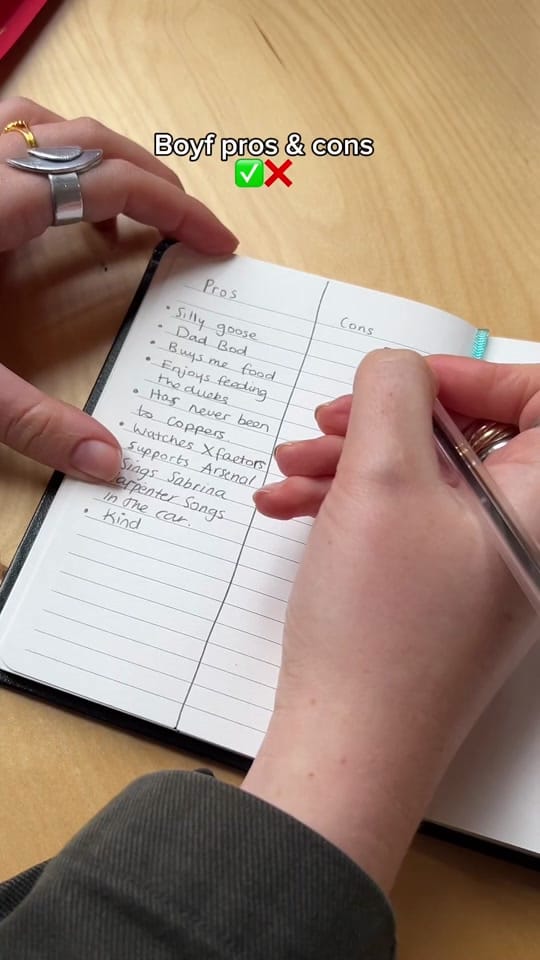 Boyf pros & cons
✅❌
Pros
Cons
• Silly goose
• Dad Bod
• Buys me food
• Enjoys feeding
the ducks
• Has never been
to Coppers.
• Watches Xfactors
supports Arsenal
Sings Sabrina
arpenter Songs
in the car.
• Kind